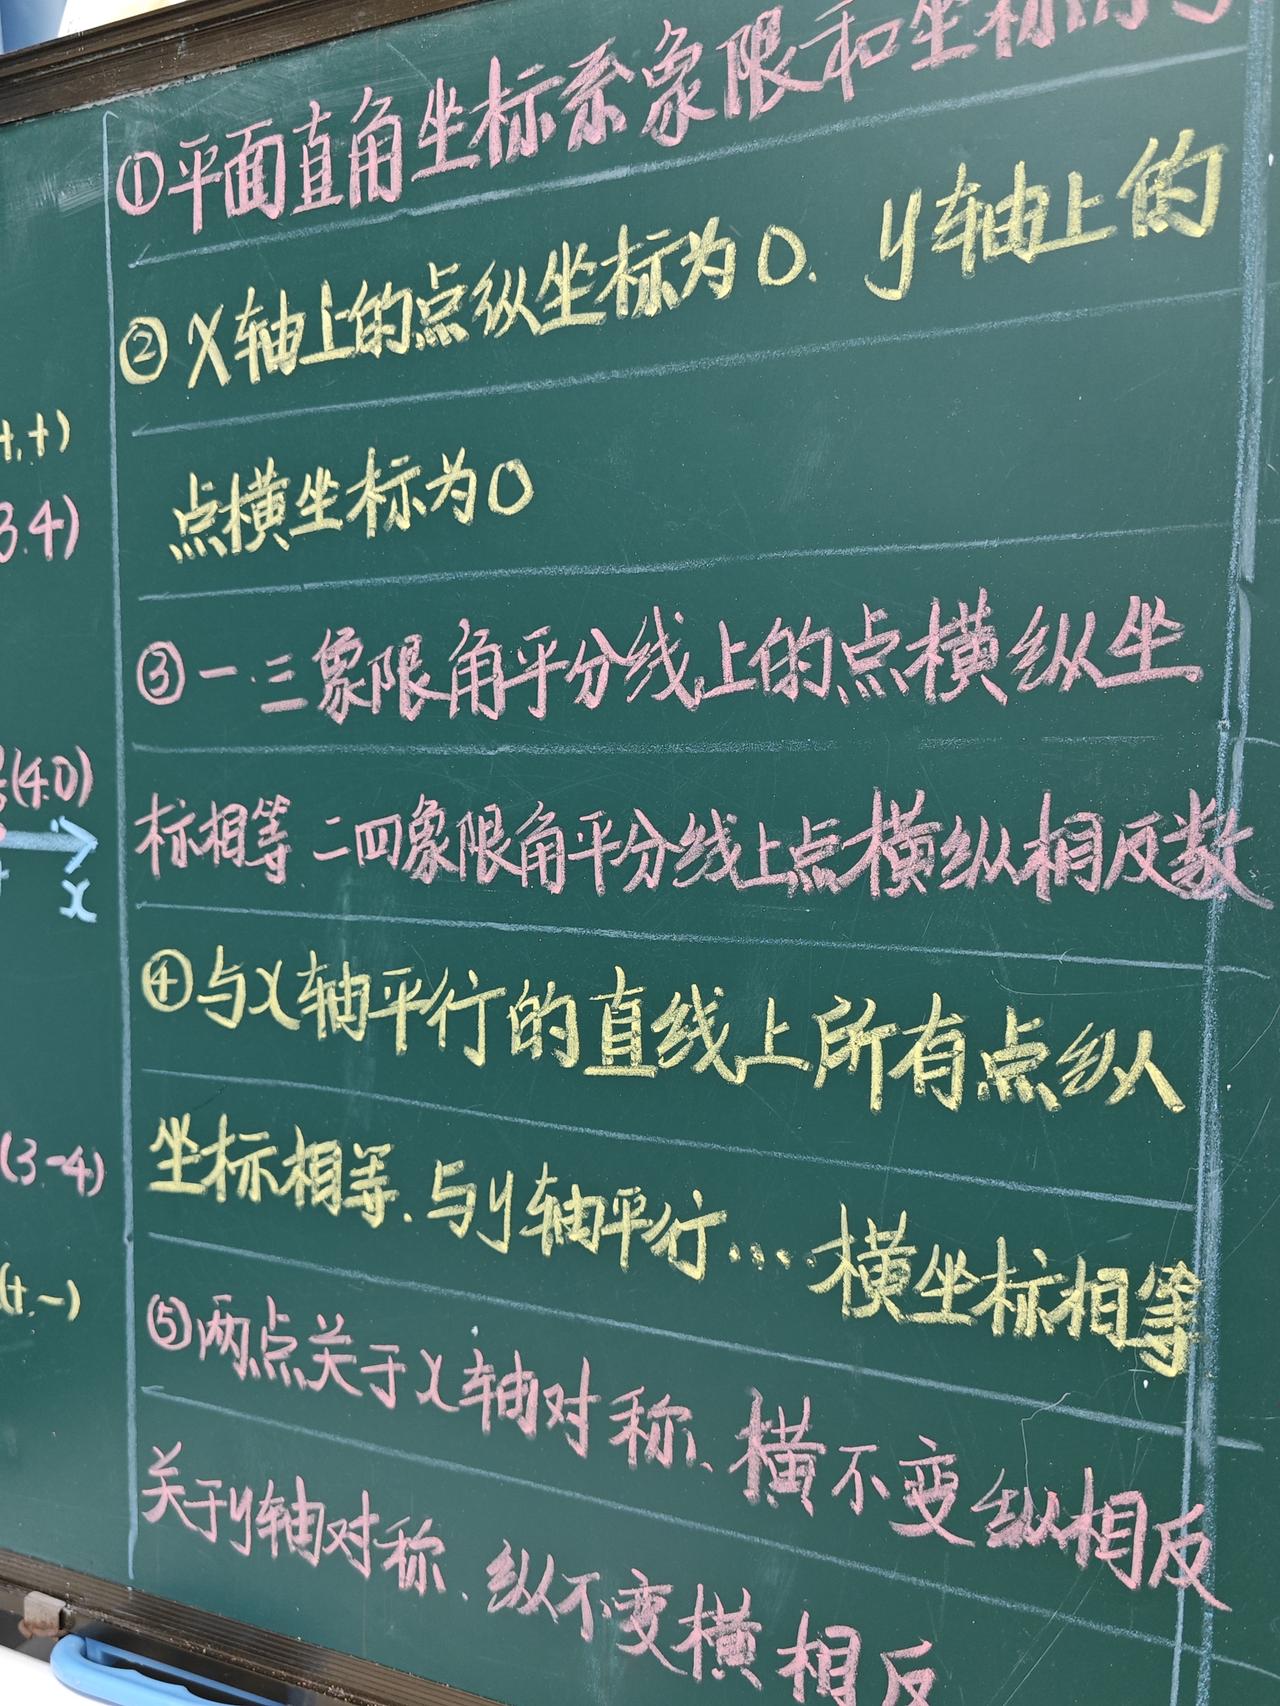 ①平面直角坐标系象限和坐标
②x轴上的点纵坐标为0.y轴上的
点横坐标为0
③一.三象限角平分线上的点横纵坐
标相等 二四象限角平分线上点横纵相反数
④与x轴平行的直线上所有点纵
坐标相等.与y轴平行...横坐标相等
⑤两点关于x轴对称、横不变纵相反
关于y轴对称.纵不变横相反
+,+)
3.4)
(4.0)
x
(3-4)
(+.-)